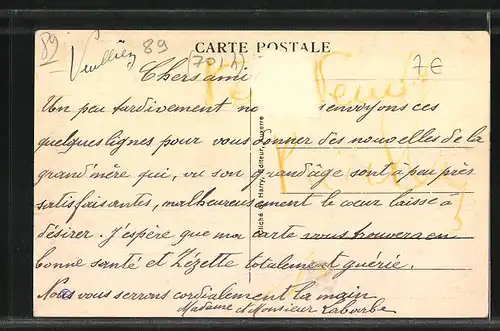 89
Venllien 89
(7011)
7€
CARTE POSTALE
Chers ami
Un peu tardivement no senvoyons ces
quelques lignes pour vous donner des nouvelles de la
grand'mère qui, vu son grand âge sont à peu près
satisfaisantes, malheureusement le cœur laisse à
désirer. J'espère que ma carte vous trouvera en
bonne santé et Zézette totalement guérie.
Nous vous serrons cordialement la main
Madame et Monsieur Laborbe
Cliché de Harry, Editeur, Auxerre